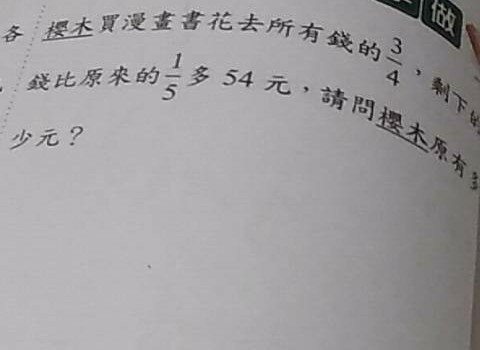 做
各 櫻木買漫畫書花去所有錢的3/4，剩下的
錢比原來的1/5多 54 元，請問櫻木原有多
少元？